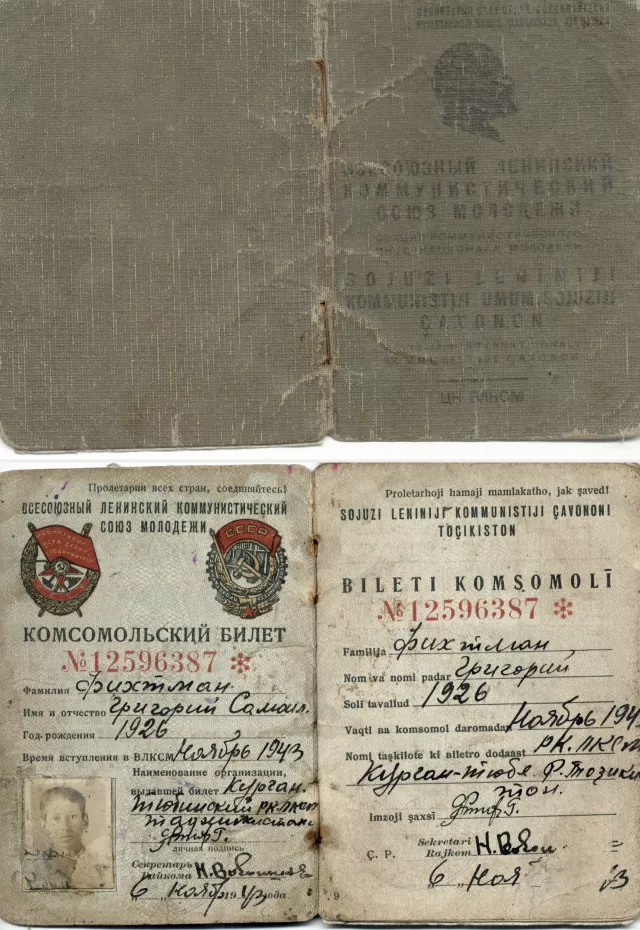 ВСЕСОЮЗНЫЙ ЛЕНИНСКИЙ
КОММУНИСТИЧЕСКИЙ
СОЮЗ МОЛОДЕЖИ
SOJUZI LENINIJI
KOMMUNISTIJI UMUM SOJUZIJI
ÇAVONON
Пролетарии всех стран, соединяйтесь!
ВСЕСОЮЗНЫЙ ЛЕНИНСКИЙ КОММУНИСТИЧЕСКИЙ
СОЮЗ МОЛОДЕЖИ
СССР
КОМСОМОЛЬСКИЙ БИЛЕТ
№12596387 *
Фамилия Фихтман
Имя и отчество Григорий Самаил.
Год рождения 1926
Время вступления в ВЛКСМ Ноябрь 1943
Наименование организации,
выдавшей билет Курган-
Тюбинский РК ЛКСМ
Таджикистана
личная подпись
Секретарь
райкома
6 Нояб 1943 года
Proletarhoji hamaji mamlakatho, jak şaved!
SOJUZI LENINIJI KOMMUNISTIJI ÇAVONONI
TOÇIKISTON
BILETI KOMSOMOLĪ
№12596387 *
Familija Фихтман
Nom va nomi padar Григорий
Soli tavallud 1926
Vaqti ba komsomol daromadan Ноябрь 1943
Nomi taşkilote ki biletro dodaast РК ЛКСМ
Курган-тюбе Р. Тоҷики
тон.
Imzoji şaxsi
Ç. P. Sekretari
Rajkom
6 Ноя 43
9